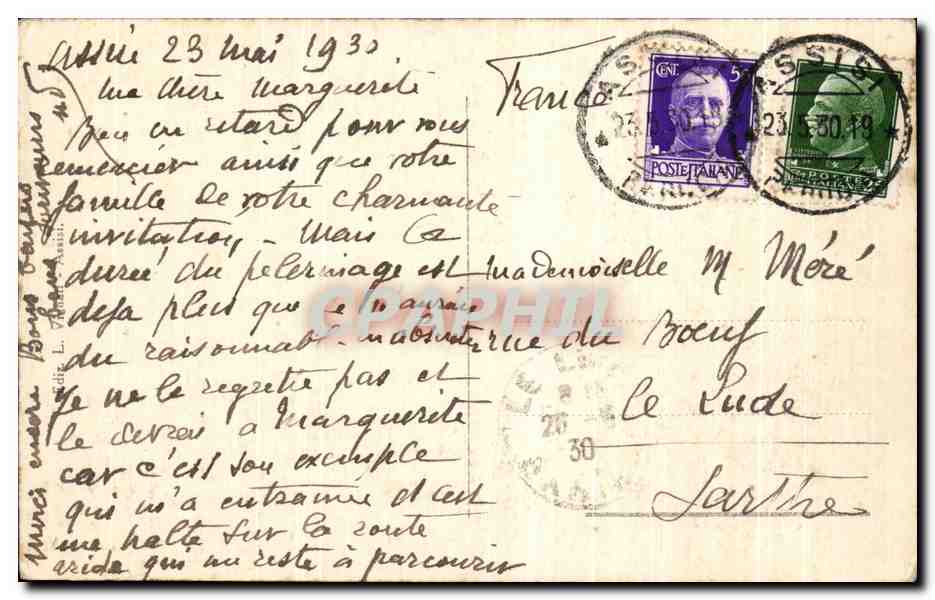 Assise 23 mai 1930
Ma chère Marguerite
Bien en retard pour vous
remercier ainsi que votre
famille de votre charmante
invitation - Mais la
durée du pelerinage est
deja plus que je n'aurais
du raisonnabt m'absenter
Je ne le regrette pas et
le devrai à Marguerite
car c'est son exemple
qui m'a entrainée et c'est
une halte sur la route
aride qui me reste à parcourir
Merci encore Bons baisers
à tous
Ediz. L. Assisi.
France
Mademoiselle M Méré
rue du Boeuf
Le Lude
Sarthe
CENT. 50
POSTE ITALIANE
ASSISI
23.5.30.19
ASSISI
23.5.30.19
POSTE ITALIANE
LE LUDE
26 -5
30
CPAPHIL